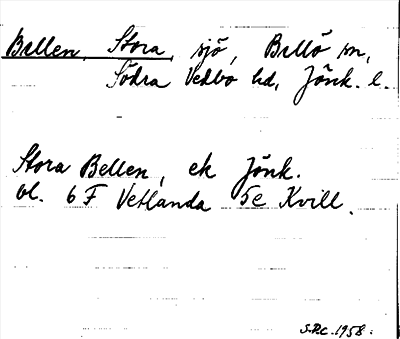 Bellen, Stora, sjö, Bellö sn,
Södra Vedbo hd, Jönk. l.
Stora Bellen, ek Jönk.
bl. 6 F Vetlanda 5e Kvill.
S.R.C. 1958.